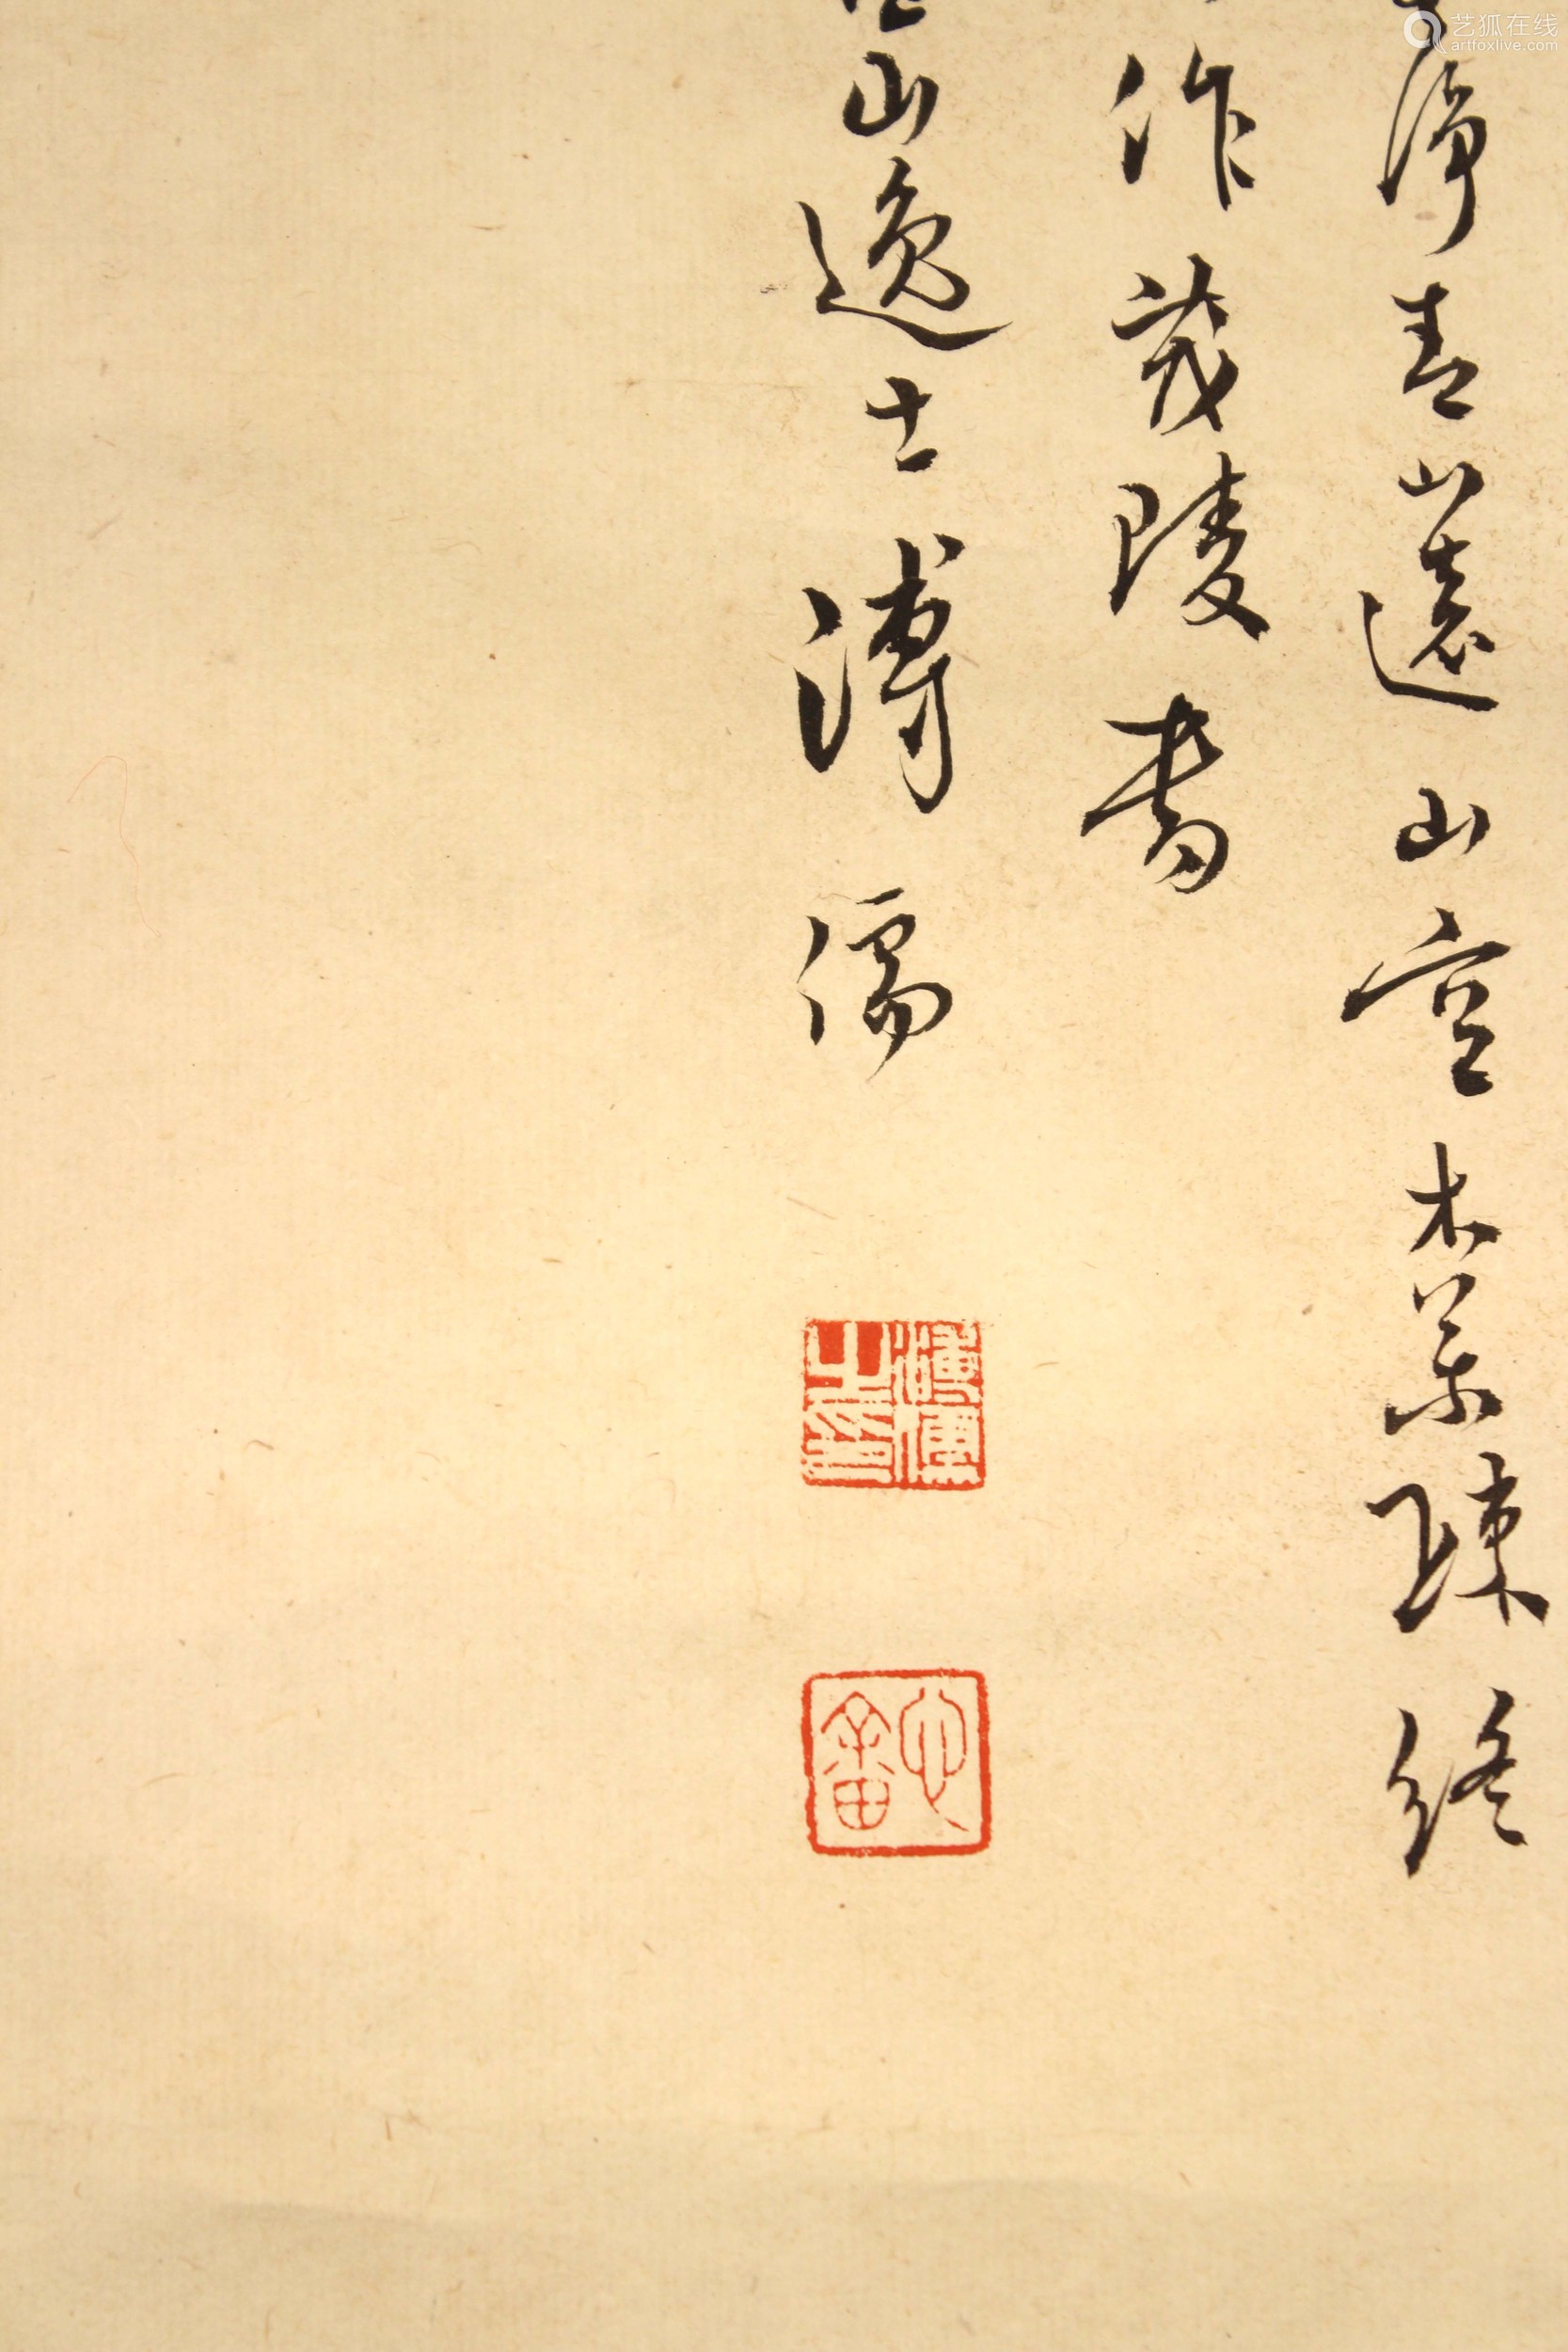 淨青山遠山空木葉疎終
作茂陵書
山逸士溥儒
溥儒之印
心畬
艺狐在线
artfoxlive.com